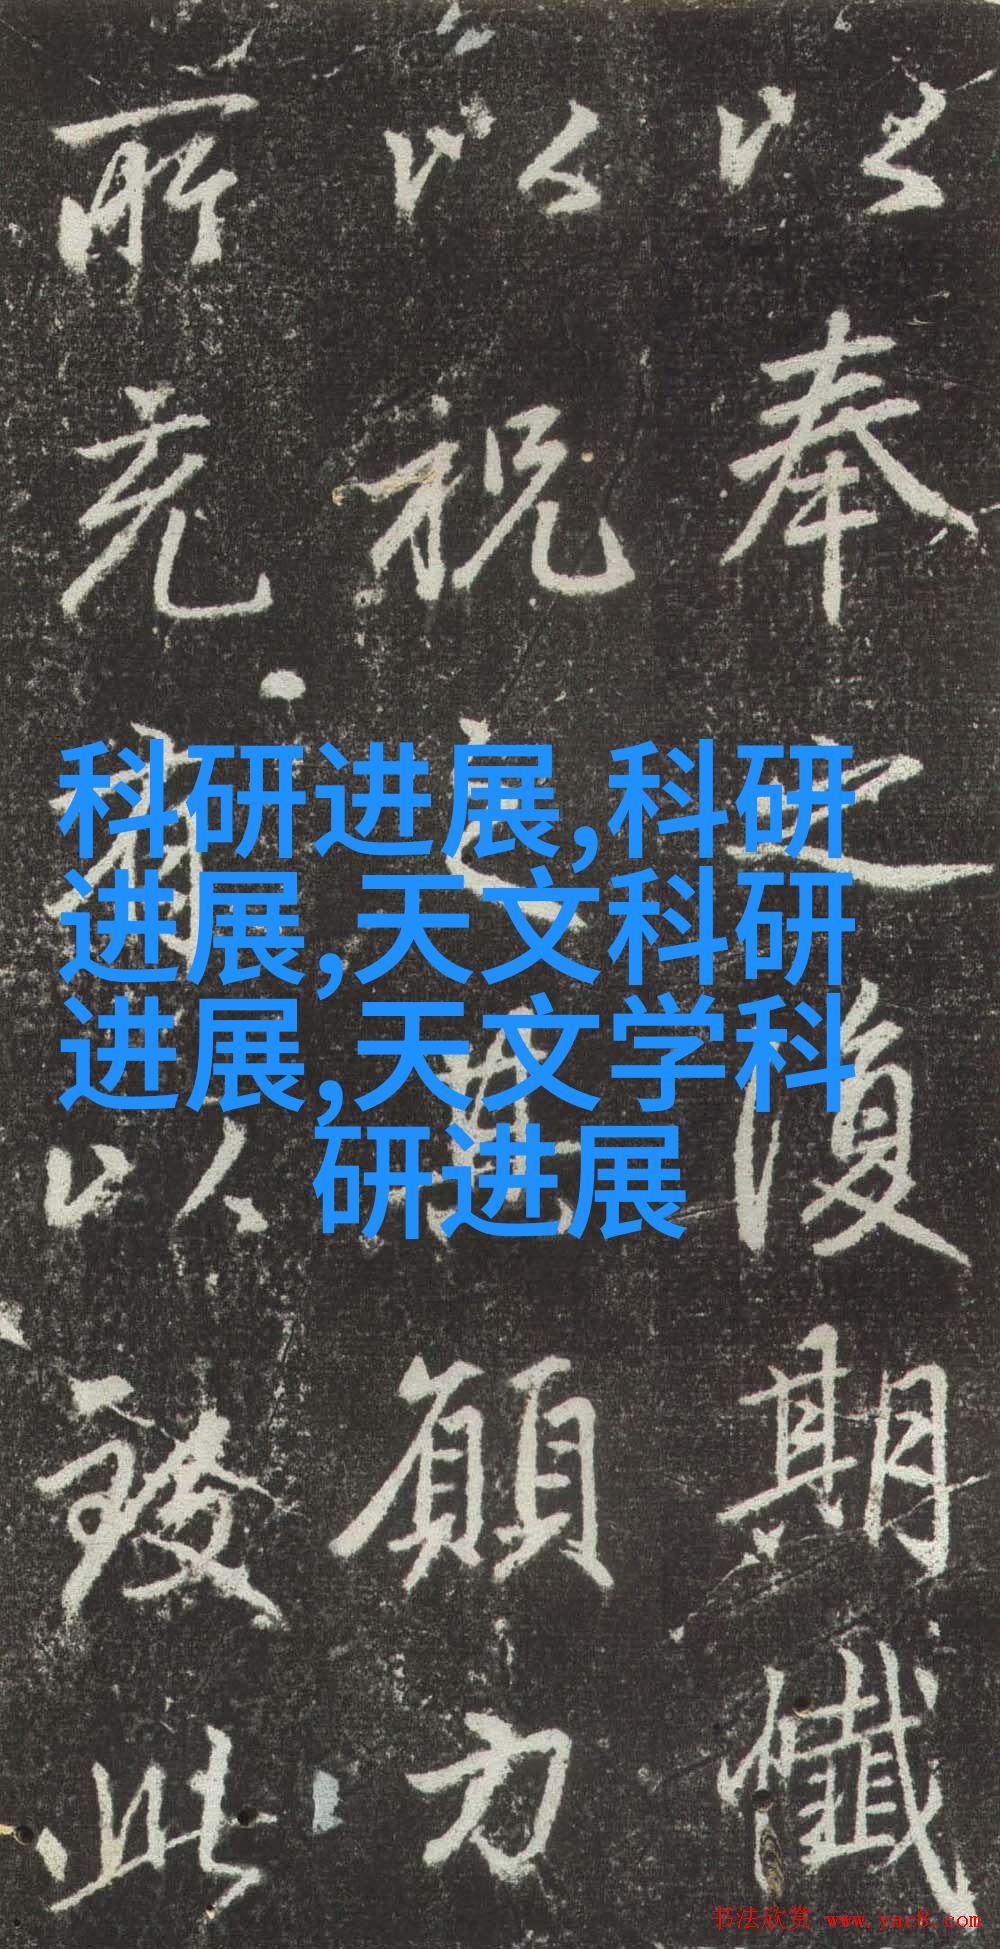 以
奉
之
復
期
懺
以
祝
之
其
願
力
所
充
爾
以
發
此
科研进展,科研
进展,天文科研
进展,天文学科
研进展
书法欣赏 www.yac8.com